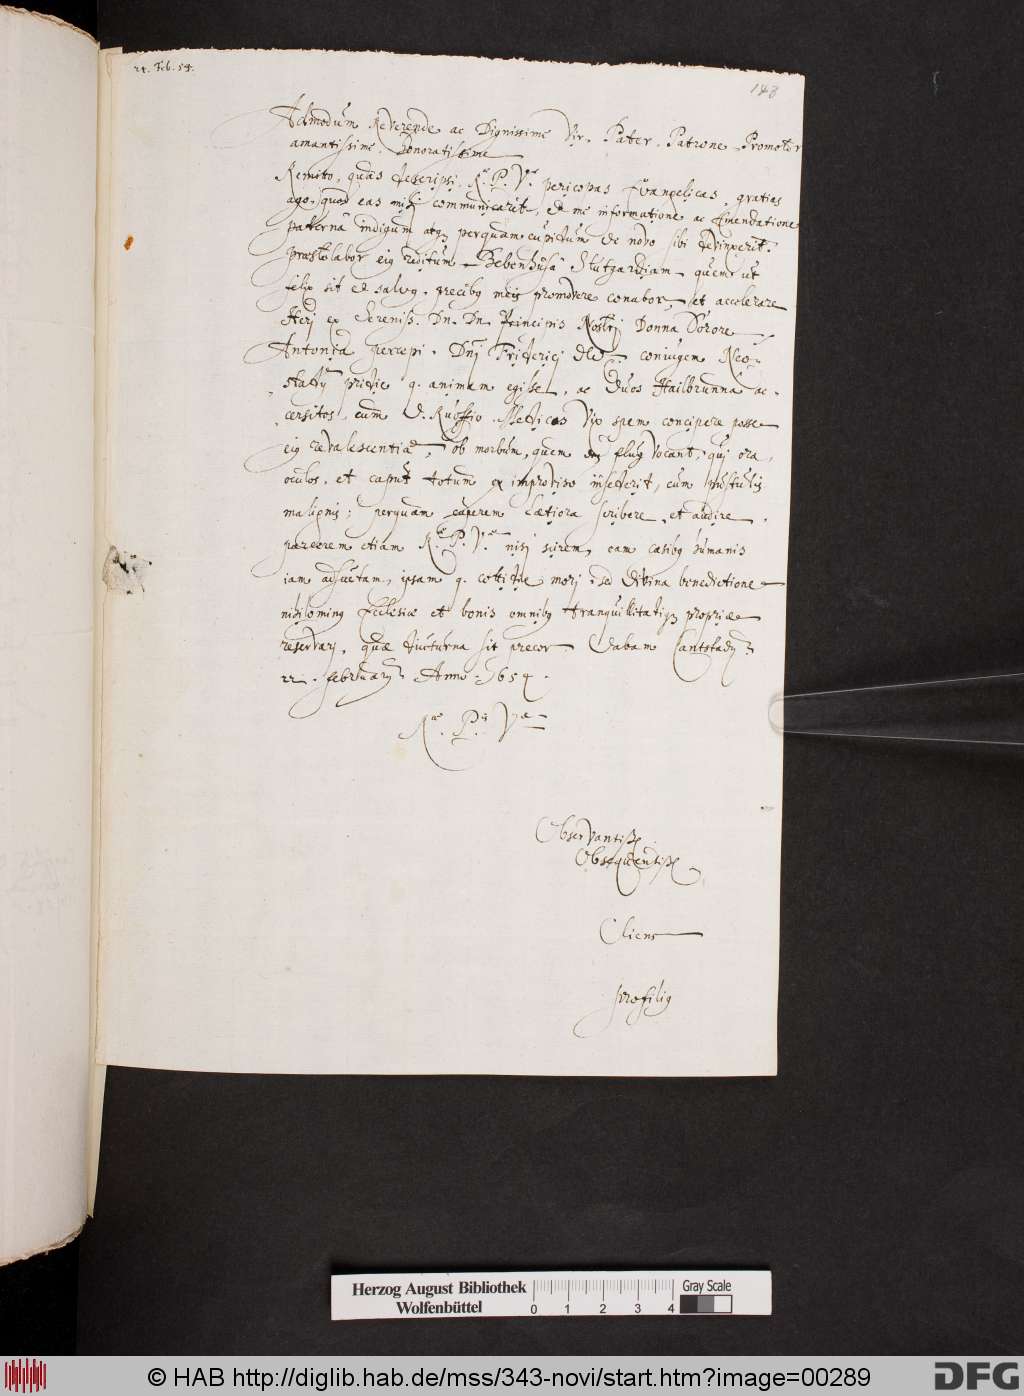 24. Feb. 54.
148
Admodum Reverende ac Dignissime Vir. Pater. Patrone. Promotor
amantissime. honoratissime
Remitto, quas descripsi. Rae. P. Vae. pericopas Evangelicas, gratias
ago, quod eas mihi communicarit, et me informatione ac Emendatione
paternâ indigum atq perquam cupidum de novo sibi devinxerit.
Praestolabor eiq reditum Bebenhusâ Stutgardiam quem ut
felix sit et salvq. precibq meis promovere conabor, et accelerare
Heri ex Sereniss. Dn. Dn. Principis Nostri Donna Sorore
Antonia percepi. Dnj Friderici coniugem Neo-
stadij pridie q. animam egisse, ac duos Hailbrunna ac-
cersitos, cum D. Medicos Vix spem concipere posse
eiq revalescentiae, ob morbum, quem fluq vocant, quj ora,
oculos, et caput totum ex improviso insederit, cum pustulis
malignis; perquam cuperem Laetiora scribere, et audire.
etiam Rae. P. Vae. nisj scirem, eam casibq humanis
iam adsuetam, ipsam q. cottidie morj. sed divina benedictione
nihilominq Ecclesiae et bonis omnibq tranquillitatiq propriae
reservarj, quae diuturna sit precor. Dabam Cantstadij
22. februarij Anno. 1654.
Rae. Pae. Vae
Observantiss
Obsequentiss
Cliens
Herzog August Bibliothek
Wolfenbüttel
0 1 2 3 4
Gray Scale
© HAB http://diglib.hab.de/mss/343-novi/start.htm?image=00289
DFG